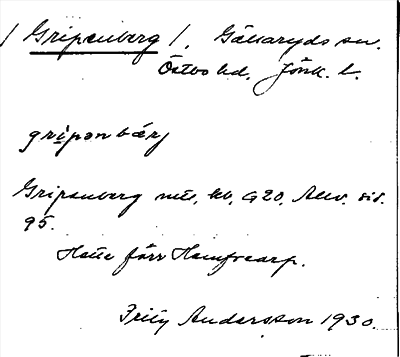 / Gripenberg /. Gällaryds sn.
Östbo hd. Jönk. l.
gripənbærj
Gripenberg GEU. sid.
95.
Hette förr
Fritz Andersson 1930.